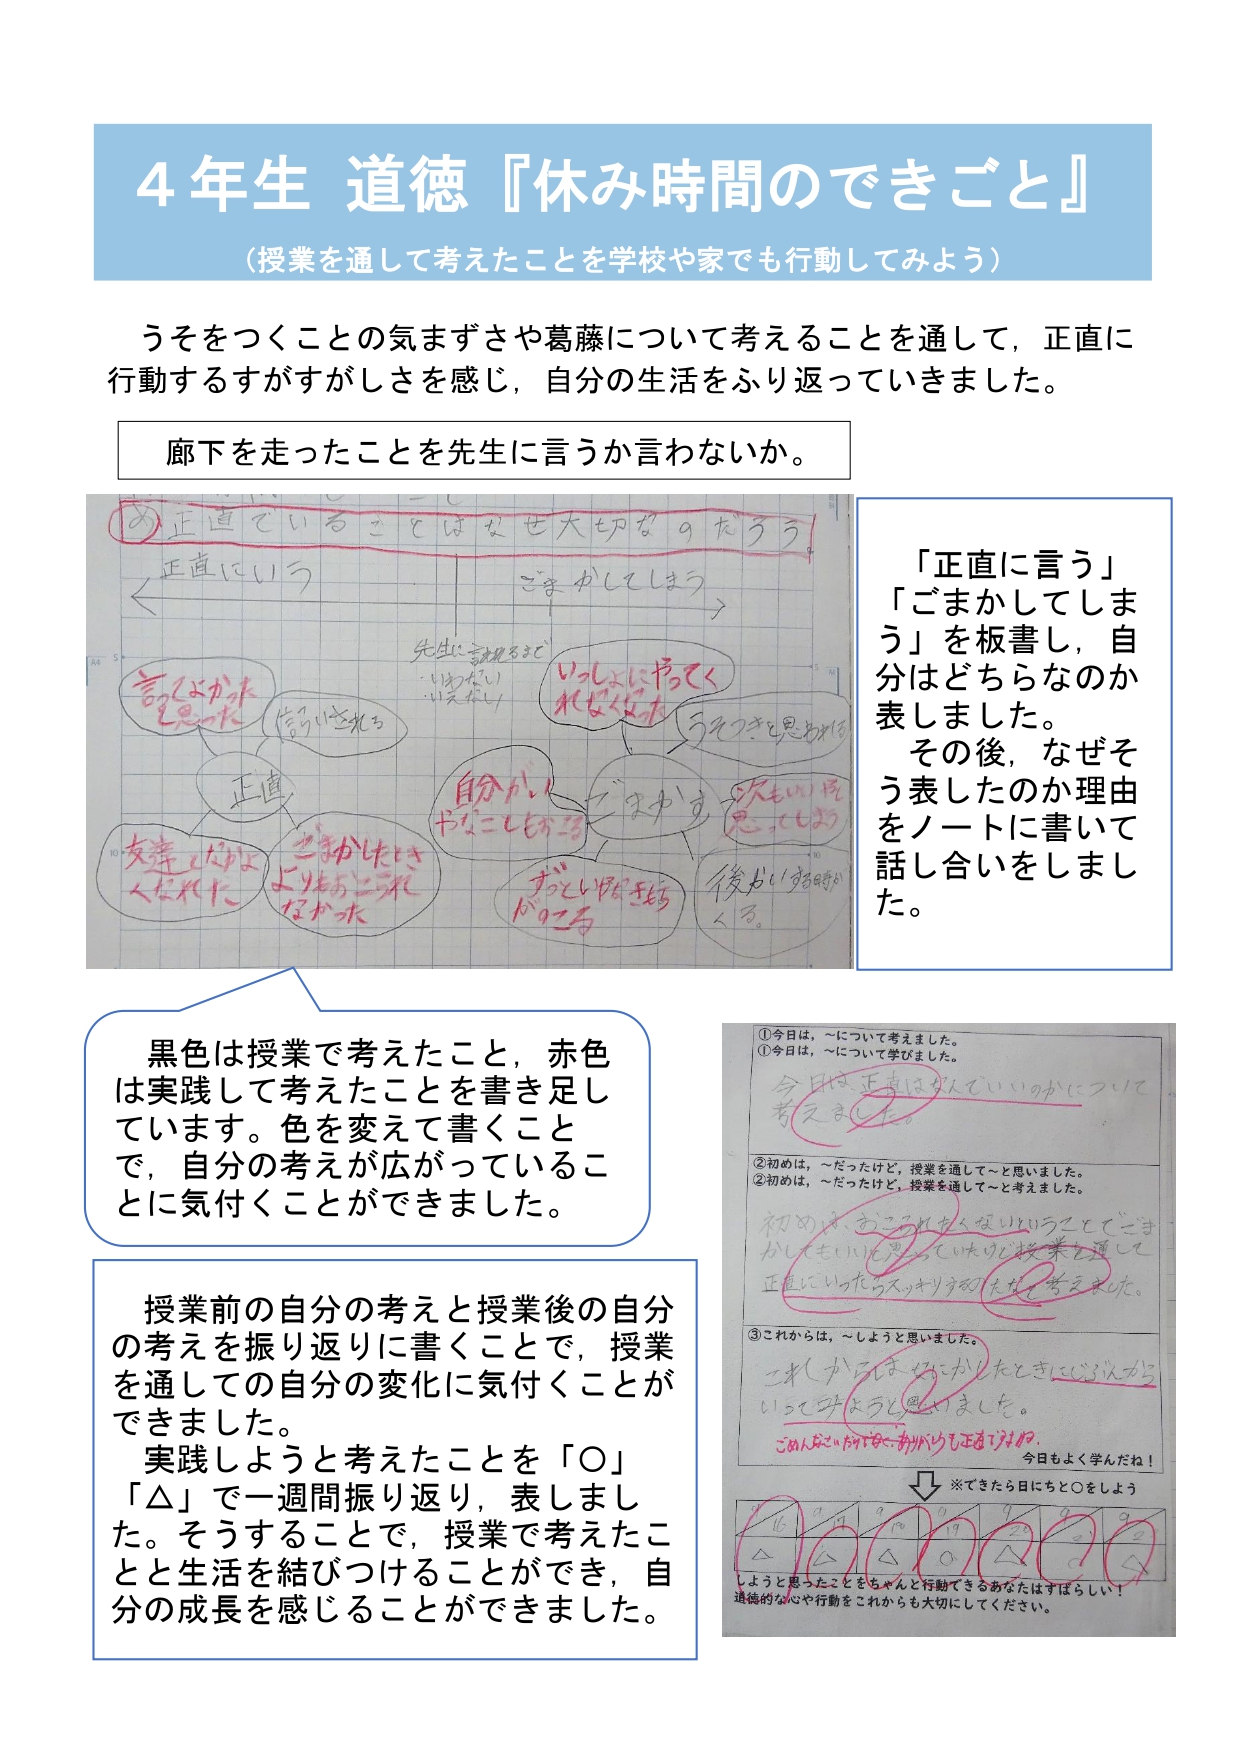 ４年生 道徳『休み時間のできごと』
（授業を通して考えたことを学校や家でも行動してみよう）
うそをつくことの気まずさや葛藤について考えることを通して，正直に
行動するすがすがしさを感じ，自分の生活をふり返っていきました。
廊下を走ったことを先生に言うか言わないか。
め 正直でいることはなぜ大切なのだろう。
正直にいう
ごまかしてしまう
先生に言われるまで
・いわない
・いえない
言ってよかった
と思った
正直
友達となかよ
くなれた
ごまかしたとき
よりもおこられ
なかった
いっしょにやってく
れなくなった
うそつきと思われる
自分がい
やなこともおこる
ごまかす
次もいいやと
思ってしまう
ずっといやなきもち
がのこる
後かいする時が
くる。
「正直に言う」
「ごまかしてしま
う」を板書し，自
分はどちらなのか
表しました。
その後，なぜそ
う表したのか理由
をノートに書いて
話し合いをしまし
た。
黒色は授業で考えたこと，赤色
は実践して考えたことを書き足し
ています。色を変えて書くこと
で，自分の考えが広がっているこ
とに気付くことができました。
授業前の自分の考えと授業後の自分
の考えを振り返りに書くことで，授業
を通しての自分の変化に気付くことが
できました。
実践しようと考えたことを「○」
「△」で一週間振り返り，表しまし
た。そうすることで，授業で考えたこ
とと生活を結びつけることができ，自
分の成長を感じることができました。
①今日は，～について考えました。
①今日は，～について学びました。
今日は正直はなんでいいのかについて
考えました。
②初めは，～だったけど，授業を通して～と思いました。
②初めは，～だったけど，授業を通して～と考えました。
初めは、おこられたくないということでごま
かしてもいいと思っていたけど授業を通して
正直にいったらスッキリするんだなと考えました。
③これからは，～しようと思いました。
これからはなにかしたときにじぶんから
いってみようと思いました。
ごめんなさいだけでなく、ありがとうも正直ですよね。
今日もよく学んだね！
※できたら日にちと○をしよう
△ △ △ ○ △ ○ △
しようと思ったことをちゃんと行動できるあなたはすばらしい！
道徳的な心や行動をこれからも大切にしてください。